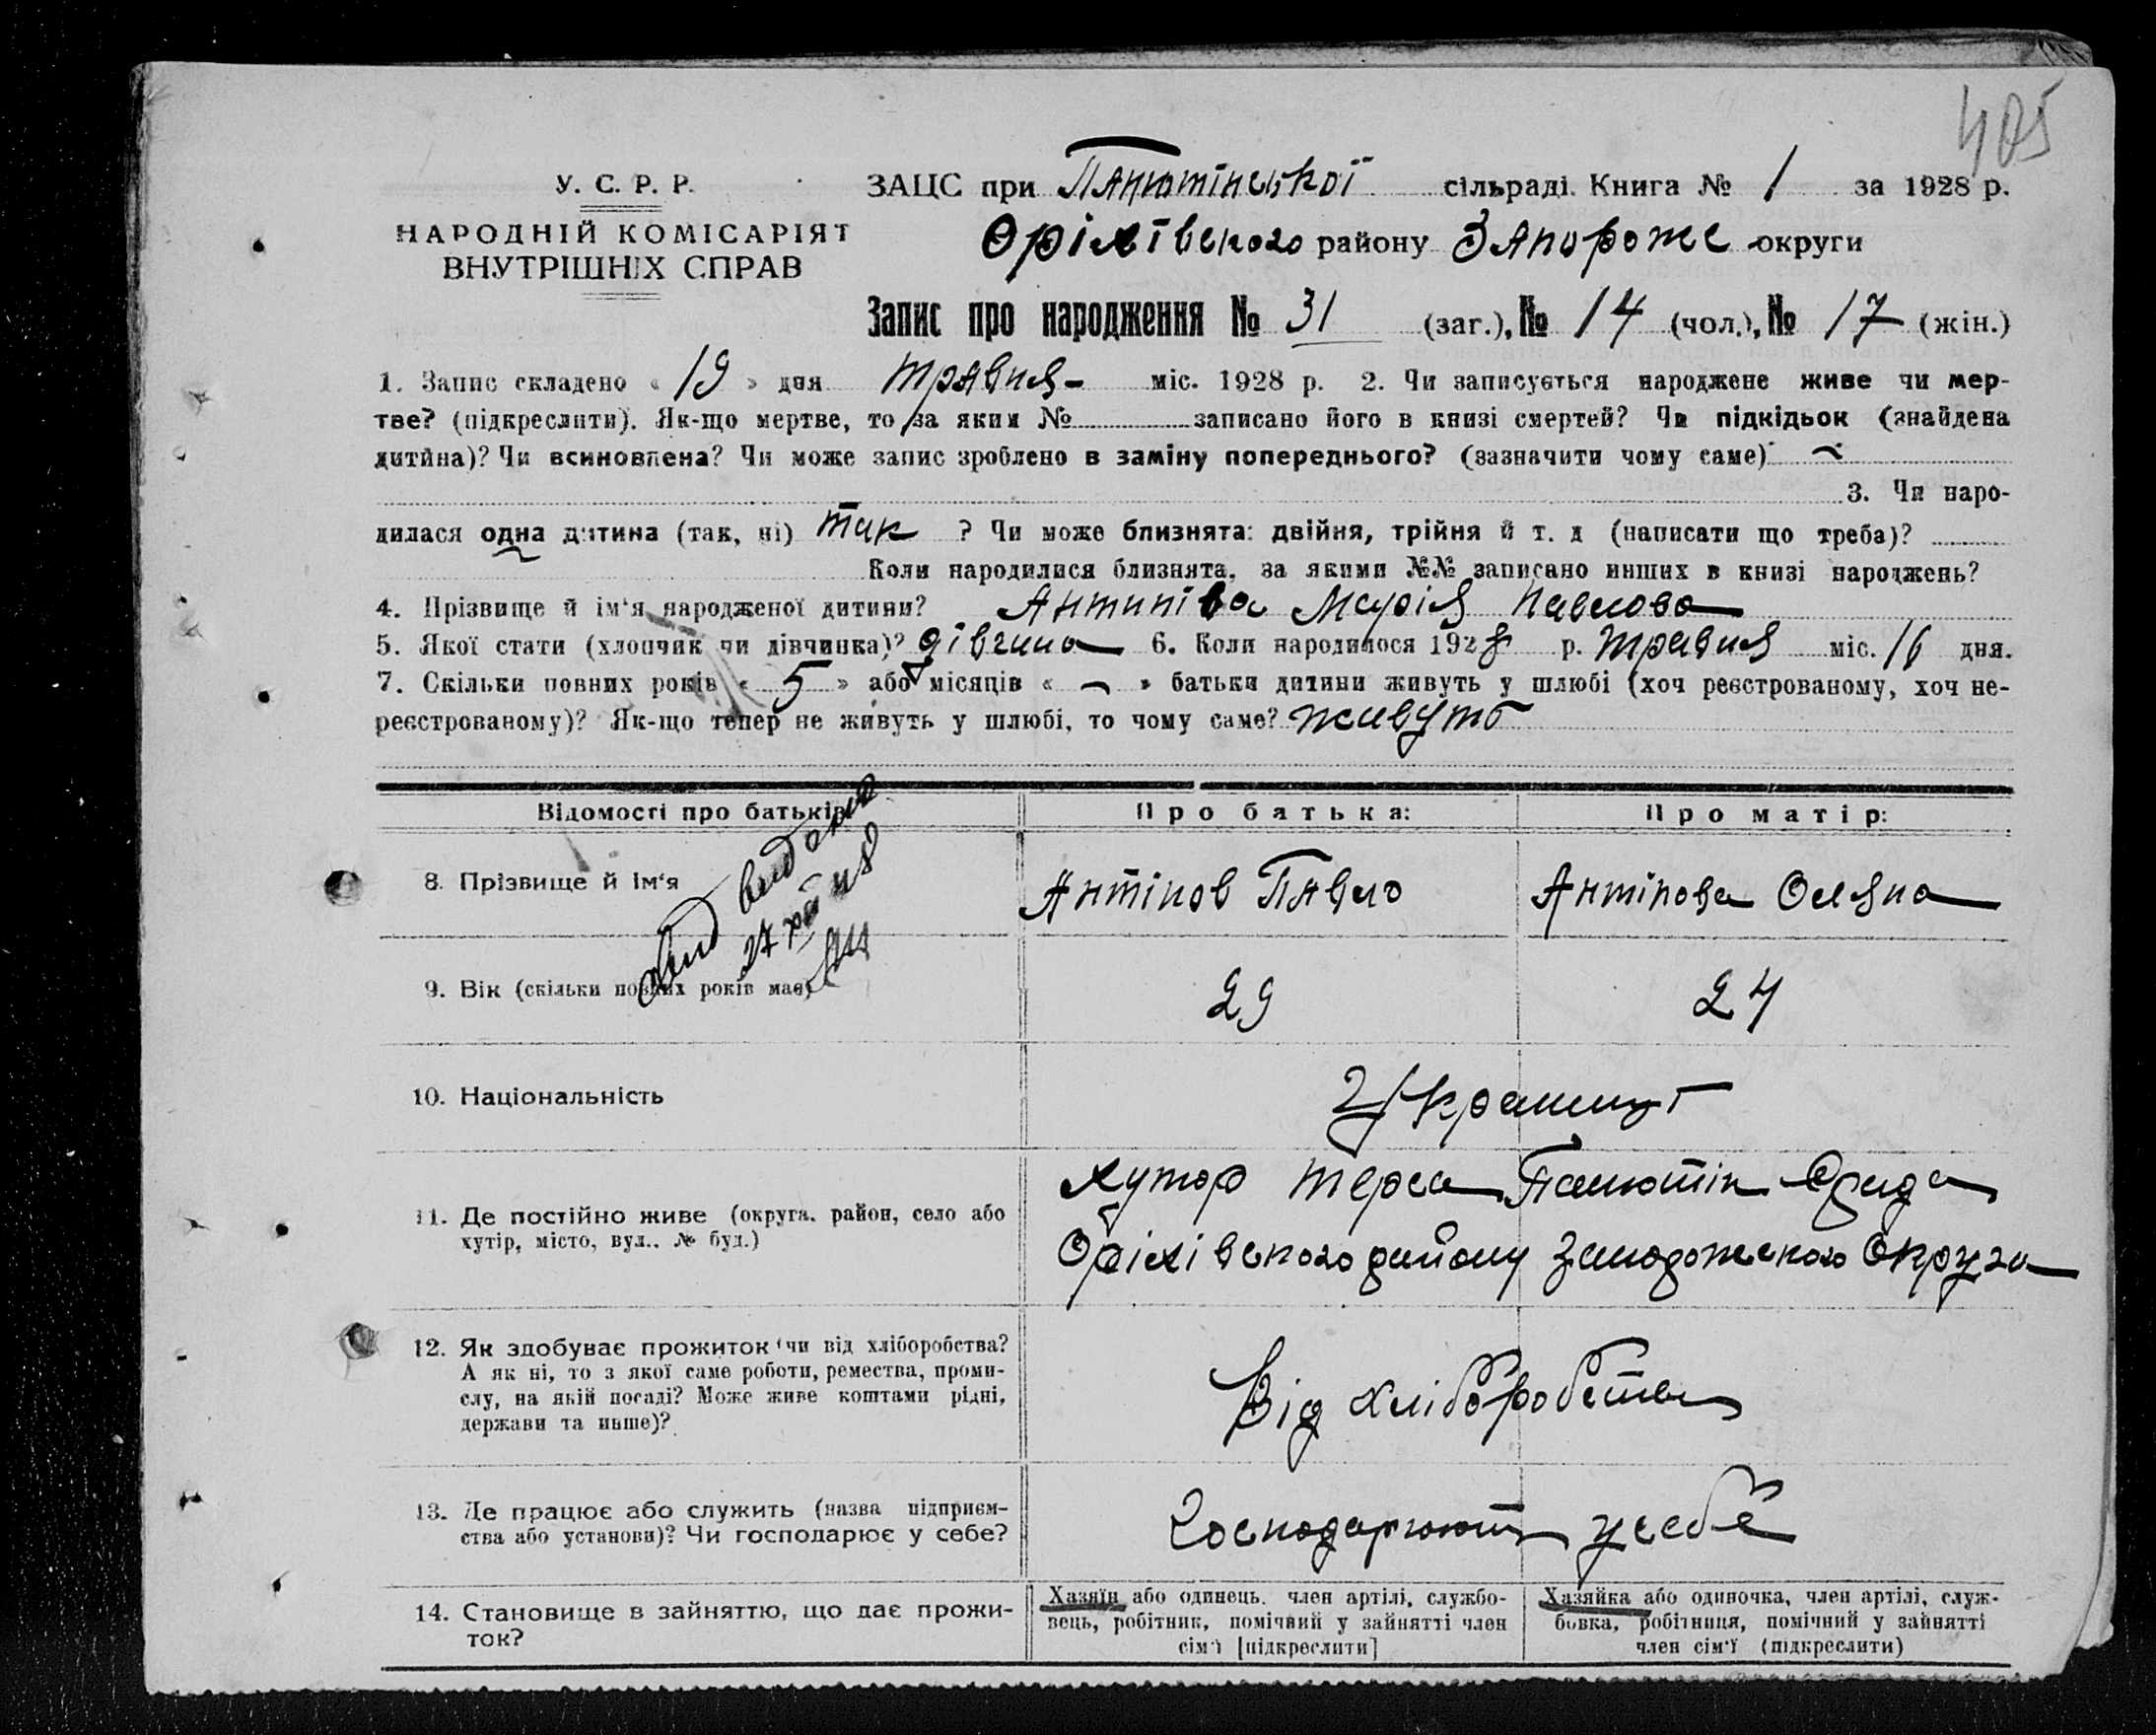 405
У. С. Р. Р.
НАРОДНІЙ КОМІСАРІЯТ
ВНУТРІШНІХ СПРАВ
ЗАЦС при Панютінської сільраді. Книга № 1 за 1928 р.
Оріхівского району Запороже округи
Запис про народження № 31 (заг.), № 14 (чол.), № 17 (жін.)
1. Запис складено « 19 » дня травня- міс. 1928 р. 2. Чи записується народжене живе чи мер-
тве? (підкреслити). Як-що мертве, то за яким № записано його в книзі смертей? Чи підкідьок (знайдена
дитина)? Чи всиновлена? Чи може запис зроблено в заміну попереднього? (зазначити чому саме)
3. Чи наро-
дилася одна дитина (так, ні) так ? Чи може близнята: двійня, трійня й т. д (написати що треба)?
Коли народилися близнята, за якими №№ записано инших в книзі народжень?
4. Прізвище й ім‘я народженої дитини? Антипіва Марія Павлова
5. Якої стати (хлопчик чи дівчинка)? дівчина 6. Коли народилося 1928 р. травня міс. 16 дня.
7. Скільки повних років « 5 » або місяців « — » батьки дитини живуть у шлюбі (хоч реєстрованому, хоч не-
реєстрованому)? Як-що тепер не живуть у шлюбі, то чому саме? живуть
Відомості про батьків Про батька: Про матір:
8. Прізвище й ім‘я Антіпов Павло Антіпова Оляна
27
9. Вік (скільки повних років має) 29 24
10. Національність
11. Де постійно живе (округа, район, село або
хутір, місто, вул., № буд.)
хутор Терса Панютін
Оріхівского району Запорожского Округа
12. Як здобуває прожиток (чи від хліборобства?
А як ні, то з якої саме роботи, ремества, проми-
слу, на якій посаді? Може живе коштами рідні,
держави та инше)?
Від хліборобства
13. Де працює або служить (назва підприєм-
ства або установи)? Чи господарює у себе?
Господарюють у себе
14. Становище в зайняттю, що дає прожи-
ток?
Хазяїн або одинець, член артілі, службо-
вець, робітник, помічний у зайнятті член
сім‘ї [підкреслити]
Хазяйка або одиночка, член артілі, служ-
бовка, робітниця, помічний у зайнятті
член сім‘ї (підкреслити)